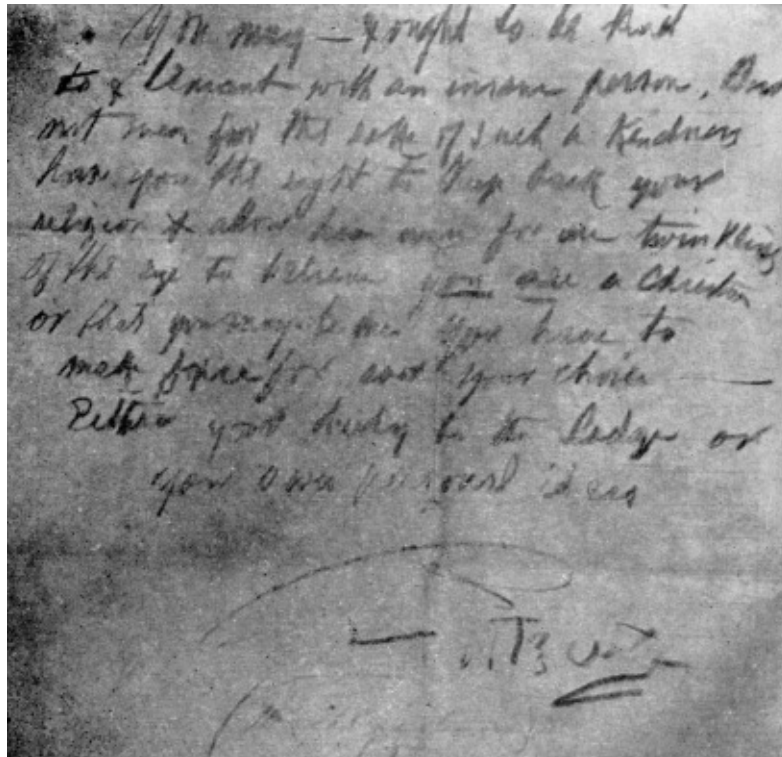 You may — & ought to be kind
to & lenient with an insane person. But
not even for the sake of such a kindness
have you the right to keep back your
religion & allow him even for one twinkling
of the eye to believe you are a Christian
or that you may be one. You have to
make once for ever your choice —
Either your duty to the Lodge or
your own personal ideas